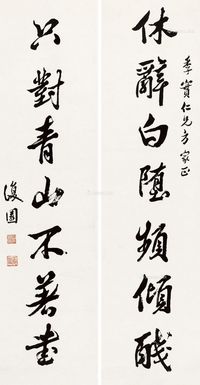 休辭白堕頻傾醆
季實仁兄方家正
只對青山不著書